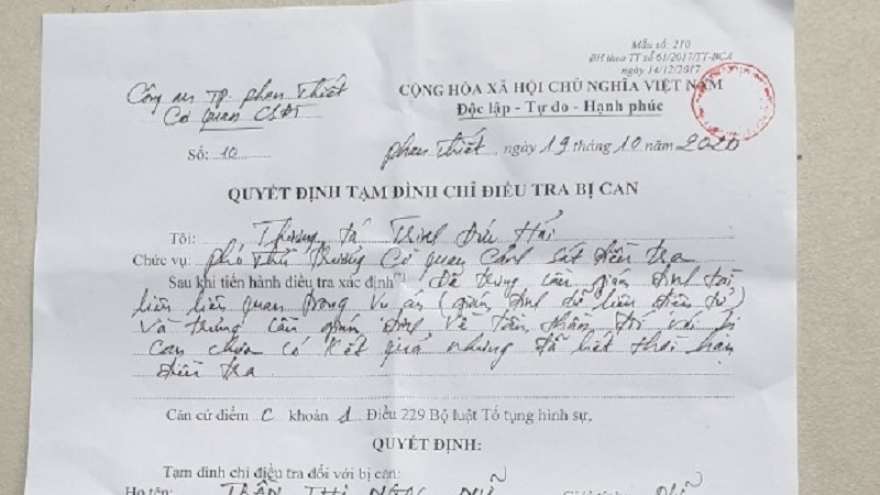 Mẫu số: 210
BH theo TT số 61/2017/TT-BCA
ngày 14/12/2017
Công an TP. Phan Thiết
Cơ quan CSĐT
CỘNG HÒA XÃ HỘI CHỦ NGHĨA VIỆT NAM
Độc lập - Tự do - Hạnh phúc
Số: 10
Phan Thiết, ngày 19 tháng 10 năm 2020
QUYẾT ĐỊNH TẠM ĐÌNH CHỈ ĐIỀU TRA BỊ CAN
Tôi: Thượng tá Trịnh Đức Hải
Chức vụ: Phó Thủ trưởng Cơ quan Cảnh sát điều tra
Sau khi tiến hành điều tra xác định(*) Đã trưng cầu giám định tài
liệu liên quan trong vụ án (giám định dữ liệu điện tử)
và trưng cầu giám định về tâm thần đối với bị
can chưa có kết quả nhưng đã hết thời hạn
điều tra
Căn cứ điểm c khoản 1 Điều 229 Bộ luật Tố tụng hình sự,
QUYẾT ĐỊNH:
Tạm đình chỉ điều tra đối với bị can:
Họ tên: Trần Thị Ngọc Nữ